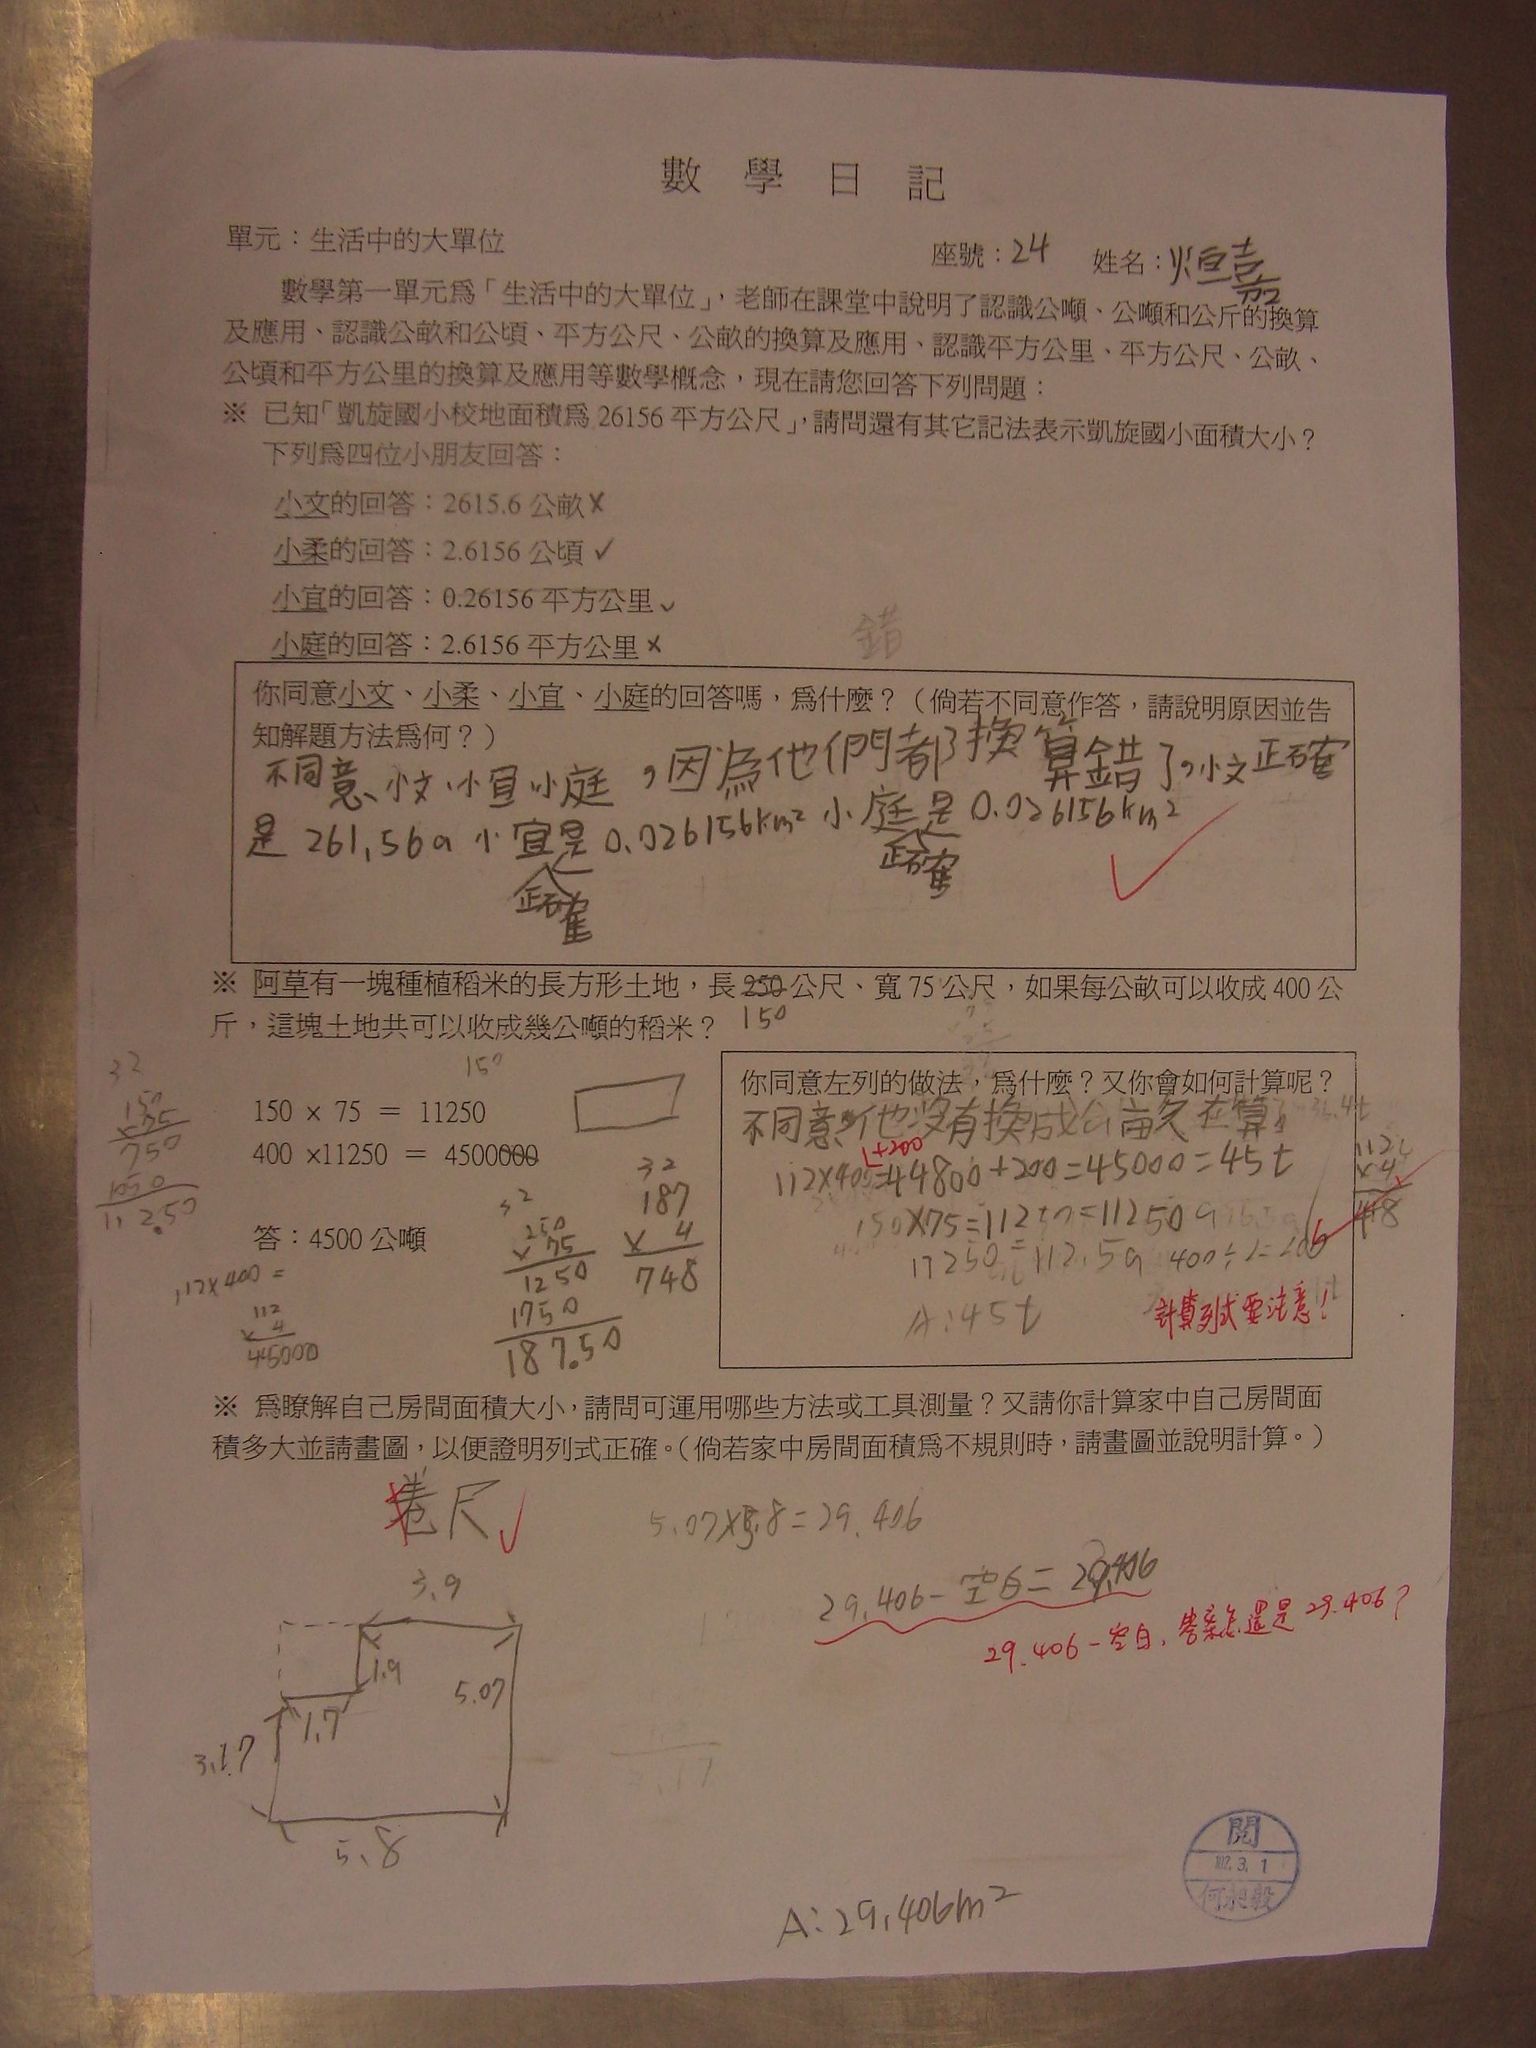 數學日記
單元：生活中的大單位
座號：24 姓名：烜嘉
數學第一單元為「生活中的大單位」，老師在課堂中說明了認識公噸、公噸和公斤的換算
及應用、認識公畝和公頃、平方公尺、公畝的換算及應用、認識平方公里、平方公尺、公畝、
公頃和平方公里的換算及應用等數學概念，現在請您回答下列問題：
※ 已知「凱旋國小校地面積為 26156 平方公尺」，請問還有其它記法表示凱旋國小面積大小？
下列為四位小朋友回答：
小文的回答：2615.6 公畝 ×
小柔的回答：2.6156 公頃 ✓
小宜的回答：0.26156 平方公里 ✓
小庭的回答：2.6156 平方公里 ×
錯
你同意小文、小柔、小宜、小庭的回答嗎，為什麼？（倘若不同意作答，請說明原因並告
知解題方法為何？）
不同意、小文、小宜、小庭，因為他們都換算錯了，小文正確
是 261.56a 小宜正確是 0.026156km² 小庭正確是 0.026156km²
※ 阿草有一塊種植稻米的長方形土地，長 250 公尺、寬 75 公尺，如果每公畝可以收成 400 公
150
斤，這塊土地共可以收成幾公噸的稻米？
150
32
150
×75
750
1050
112.50
150 × 75 = 11250
400 ×11250 = 4500000
答：4500 公噸
112×400=
112
× 4
45000
32
250
× 75
1250
1750
187.50
32
187
× 4
748
你同意左列的做法，為什麼？又你會如何計算呢？
不同意，他沒有換成公畝在算
1+200
112×400=44800+200=45000=45t
150×75=11250=11250a
11250=112.5a 400÷2=200
A:45t
計算列式要注意！
112
× 4
448
※ 為瞭解自己房間面積大小，請問可運用哪些方法或工具測量？又請你計算家中自己房間面
積多大並請畫圖，以便證明列式正確。（倘若家中房間面積為不規則時，請畫圖並說明計算。）
捲尺
5.07×5.8=29.406
29.406-空白=29.406
29.406-空白，答案怎還是29.406？
3.9
1.9
5.07
1.7
3.17
5.8
A:29.406m²
閱
102.3.1